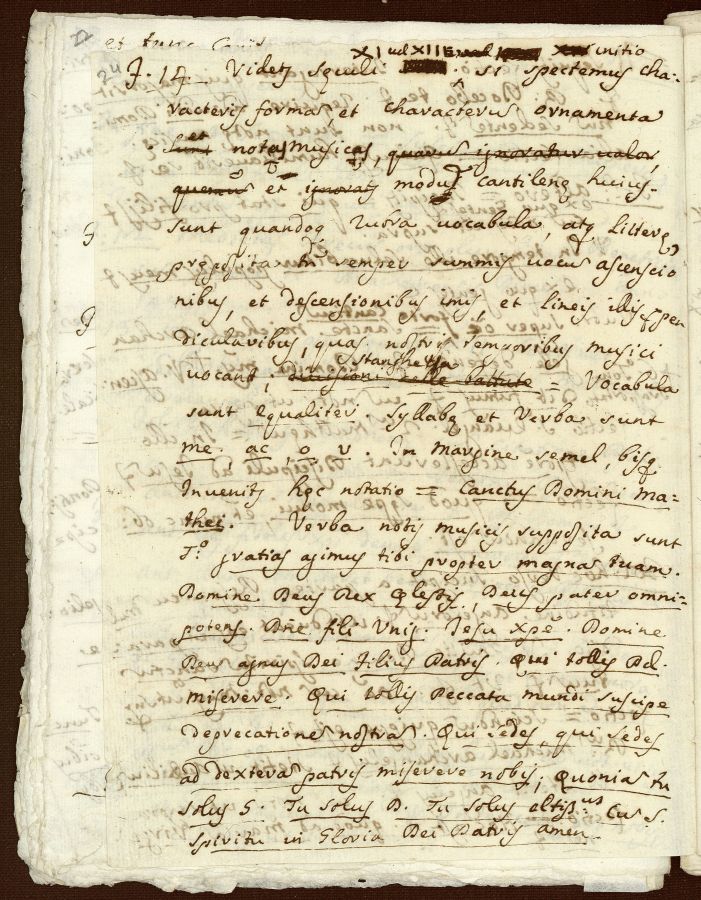 22
24
XI uel XII initio
J. 14. Videtʒ sęculi . si spectemus cha:
racteris formas, et characterus ornamenta
sunt et notas musicas, quarus ignoratur ualor,
quemus et ignoratʒ modus cantilenę huius.
sunt quandoq uora uocabula, atq litterę,
prępposita semper summis uocus ascensio
nibus, et descensionibus imis, et lineis illis ppen
dicularibus, quas nostris temporibus musici
stanghetta
uocant, diuisioni delle battute = Vocabula
sunt equaliter. Syllabę et Verba sunt
me, ac, o, v. In margine semel, bisq.
Inuenitʒ hęc notatio = Canctus Domini ma=
thei. Verba notis musicis suppoſita sunt
T.º gratias agimus tibi propter magnas tuam.
Domine Deus Rex Cęlestis, Deus pater omni=
potens. Dñe fili Unig. Jesu Xpẽ. Domine
Deus agnus Dei Filius Patris. Qui tollis P.d.
miserere. Qui tollis Peccata mundi suscipe
deprecationes nostras. Qui sedes, qui sedes
ad dexteras patris miserere nobis, quonias tu
solus S. Tu solus D. Tu solus altiss:us Cus S.
spiritu in Gloria Dei Patris amen.